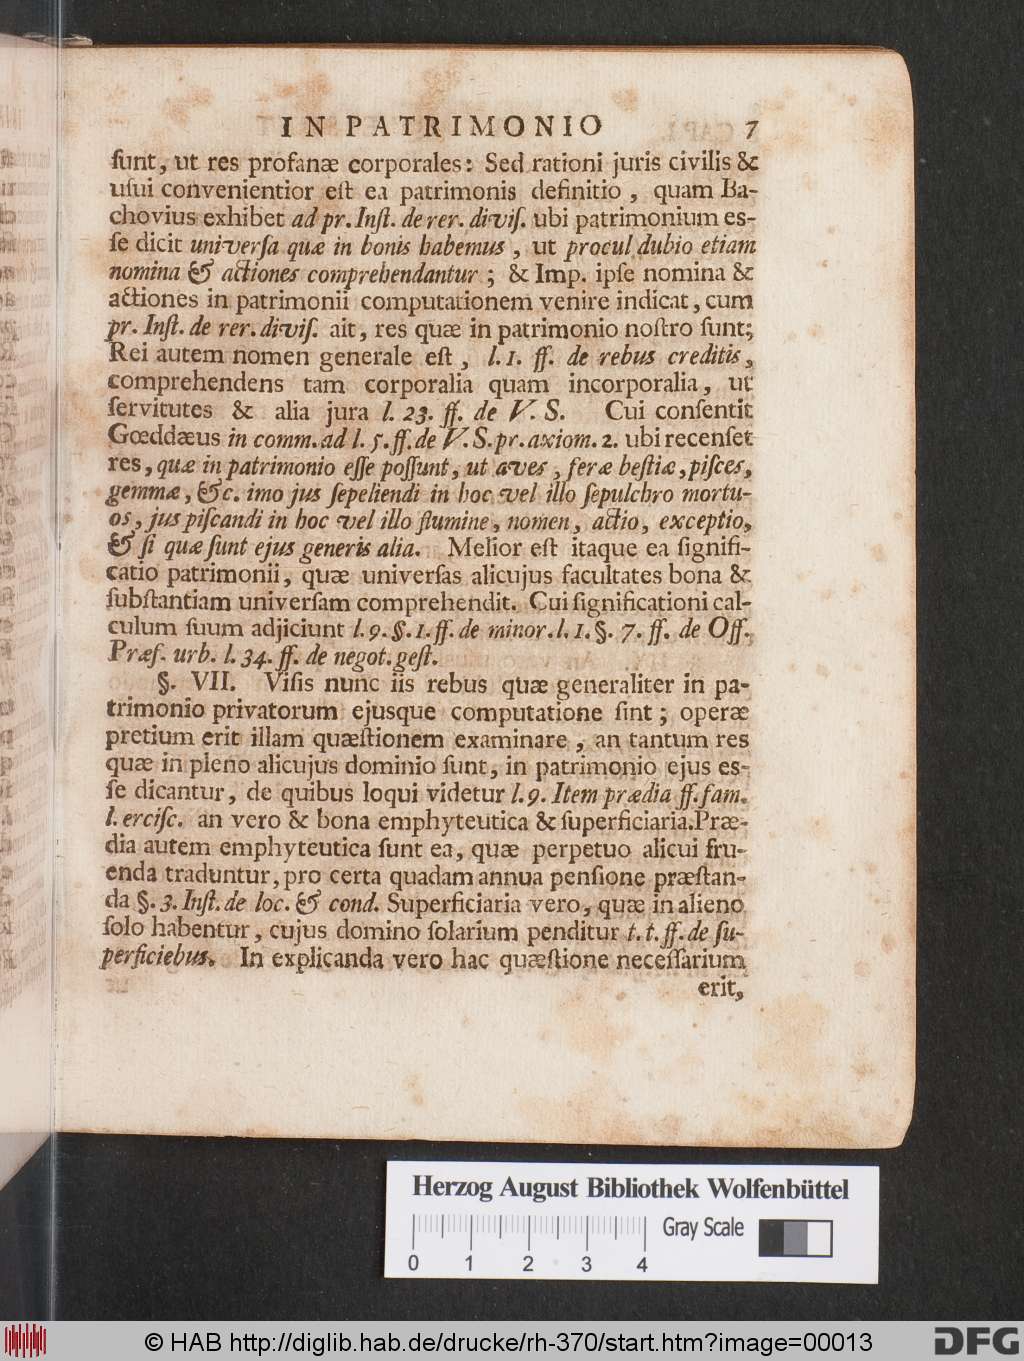 IN PATRIMONIO 7
ſunt, ut res profanæ corporales: Sed rationi juris civilis &
uſui convenientior eſt ea patrimonis definitio, quam Ba-
chovius exhibet ad pr. Inſt. de rer. diviſ. ubi patrimonium es-
ſe dicit univerſa quæ in bonis habemus, ut procul dubio etiam
nomina & actiones comprehendantur; & Imp. ipſe nomina &
actiones in patrimonii computationem venire indicat, cum
pr. Inſt. de rer. diviſ. ait, res quæ in patrimonio noſtro ſunt;
Rei autem nomen generale eſt, l. 1. ff. de rebus creditis,
comprehendens tam corporalia quam incorporalia, ut
ſervitutes & alia jura l. 23. ff. de V. S. Cui conſentit
Gœddæus in comm. ad l. 5. ff. de V. S. pr. axiom. 2. ubi recenſet
res, quæ in patrimonio eſſe poſſunt, ut aves, feræ beſtiæ, piſces,
gemmæ, &c. imo jus ſepeliendi in hoc vel illo ſepulchro mortu-
os, jus piſcandi in hoc vel illo flumine, nomen, actio, exceptio,
& ſi quæ ſunt ejus generis alia. Melior eſt itaque ea ſignifi-
catio patrimonii, quæ univerſas alicujus facultates bona &
ſubſtantiam univerſam comprehendit. Cui ſignificationi cal-
culum ſuum adjiciunt l. 9. §. 1. ff. de minor. l. 1. §. 7. ff. de Off.
Præf. urb. l. 34. ff. de negot. geſt.
§. VII. Viſis nunc iis rebus quæ generaliter in pa-
trimonio privatorum ejusque computatione ſint; operæ
pretium erit illam quæſtionem examinare, an tantum res
quæ in pleno alicujus dominio ſunt, in patrimonio ejus es-
ſe dicantur, de quibus loqui videtur l. 9. Item prædia ff. fam.
l. erciſc. an vero & bona emphyteutica & ſuperficiaria. Præ-
dia autem emphyteutica ſunt ea, quæ perpetuo alicui fru-
enda traduntur, pro certa quadam annua penſione præſtan-
da §. 3. Inſt. de loc. & cond. Superficiaria vero, quæ in alieno
ſolo habentur, cujus domino ſolarium penditur t. t. ff. de ſu-
perficiebus. In explicanda vero hac quæſtione neceſſarium
erit,
Herzog August Bibliothek Wolfenbüttel
Gray Scale
0 1 2 3 4
© HAB http://diglib.hab.de/drucke/rh-370/start.htm?image=00013
DFG